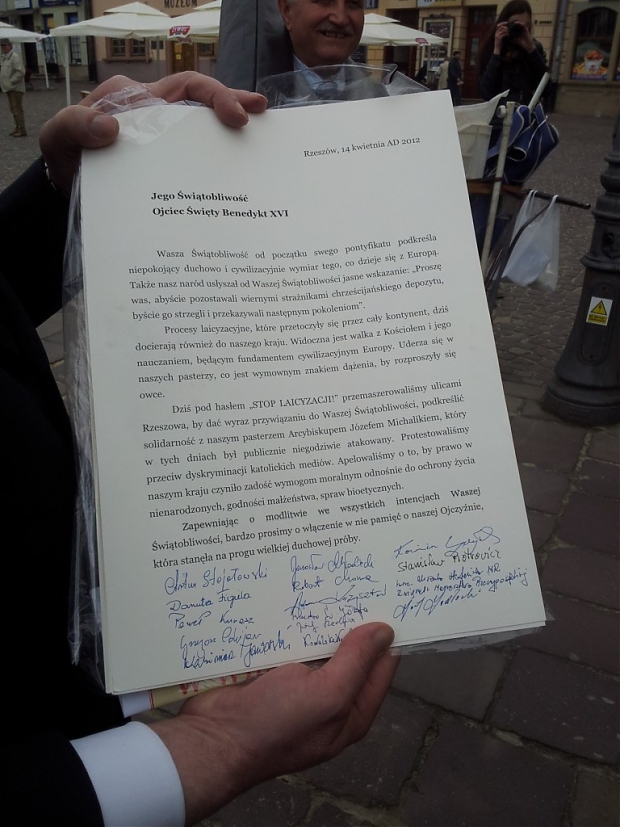 MUZEUM
Rzeszów, 14 kwietnia AD 2012
Jego Świątobliwość
Ojciec Święty Benedykt XVI
Wasza Świątobliwość od początku swego pontyfikatu podkreśla
niepokojący duchowo i cywilizacyjnie wymiar tego, co dzieje się z Europą.
Także nasz naród usłyszał od Waszej Świątobliwości jasne wskazanie: „Proszę
was, abyście pozostawali wiernymi strażnikami chrześcijańskiego depozytu,
byście go strzegli i przekazywali następnym pokoleniom”.
Procesy laicyzacyjne, które przetoczyły się przez cały kontynent, dziś
docierają również do naszego kraju. Widoczna jest walka z Kościołem i jego
nauczaniem, będącym fundamentem cywilizacyjnym Europy. Uderza się w
naszych pasterzy, co jest wymownym znakiem dążenia, by rozproszyły się
owce.
Dziś pod hasłem „STOP LAICYZACJI!” przemaszerowaliśmy ulicami
Rzeszowa, by dać wyraz przywiązania do Waszej Świątobliwości, podkreślić
solidarność z naszym pasterzem Arcybiskupem Józefem Michalikiem, który
w tych dniach był publicznie niegodziwie atakowany. Protestowaliśmy
przeciw dyskryminacji katolickich mediów. Apelowaliśmy o to, by prawo w
naszym kraju czyniło zadość wymogom moralnym odnośnie do ochrony życia
nienarodzonych, godności małżeństwa, spraw bioetycznych.
Zapewniając o modlitwie we wszystkich intencjach Waszej
Świątobliwości, bardzo prosimy o włączenie w nie pamięć o naszej Ojczyźnie,
która stanęła na progu wielkiej duchowej próby.
Artur Stojałowski
Danuta Figula
Paweł
Kazimierz Jaworski
Jarosław
Robert
Krzysztof
Kazimierz
Stanisław Piotrowicz